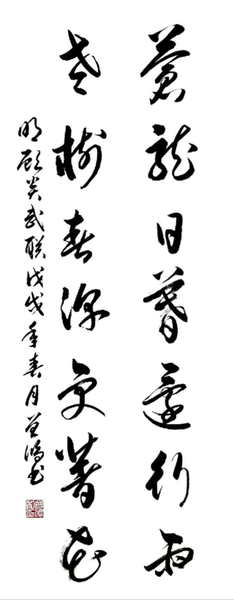 蒼龍日暮還行雨
老樹春深更著花
明顾炎武联戊戌年春月